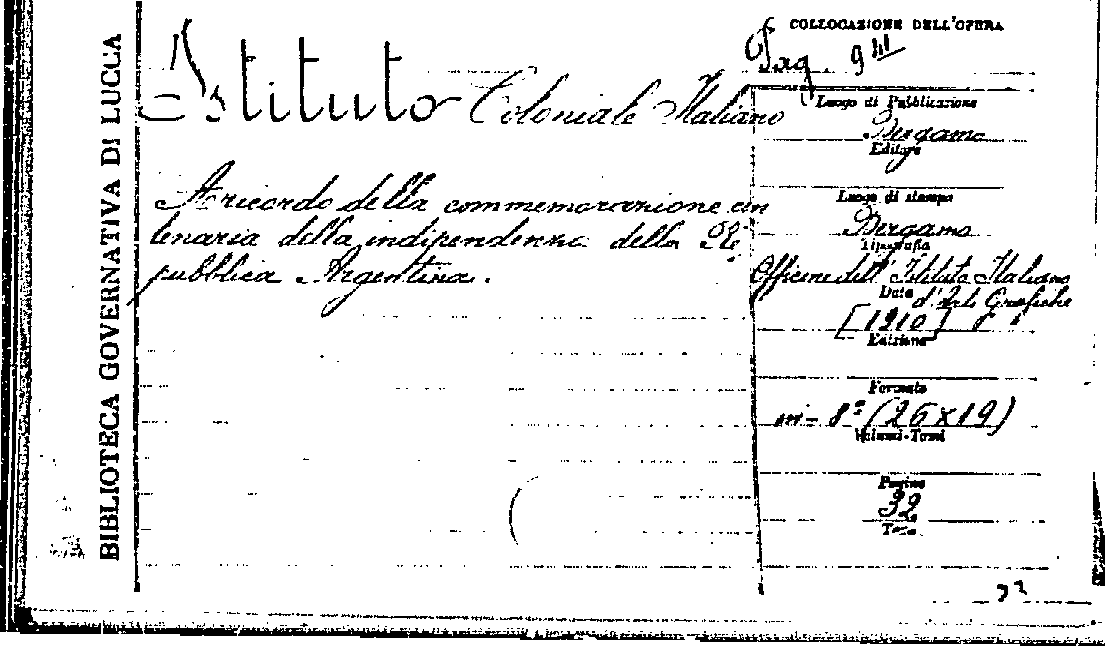 BIBLIOTECA GOVERNATIVA DI LUCCA
Istituto Coloniale Italiano
A ricordo della commemorazione cen
tenaria della indipendenza della Re
pubblica Argentina.
COLLOCAZIONE DELL'OPERA
Luogo di Pubblicazione
Bergamo
Editore
Luogo di stampa
Bergamo
Tipografia
Officine dell'Istituto Italiano
Data d'Arti Grafiche
[1910]
Edizione
Formato
in-8º (26x19)
Volumi-Tomi
Pagine
32